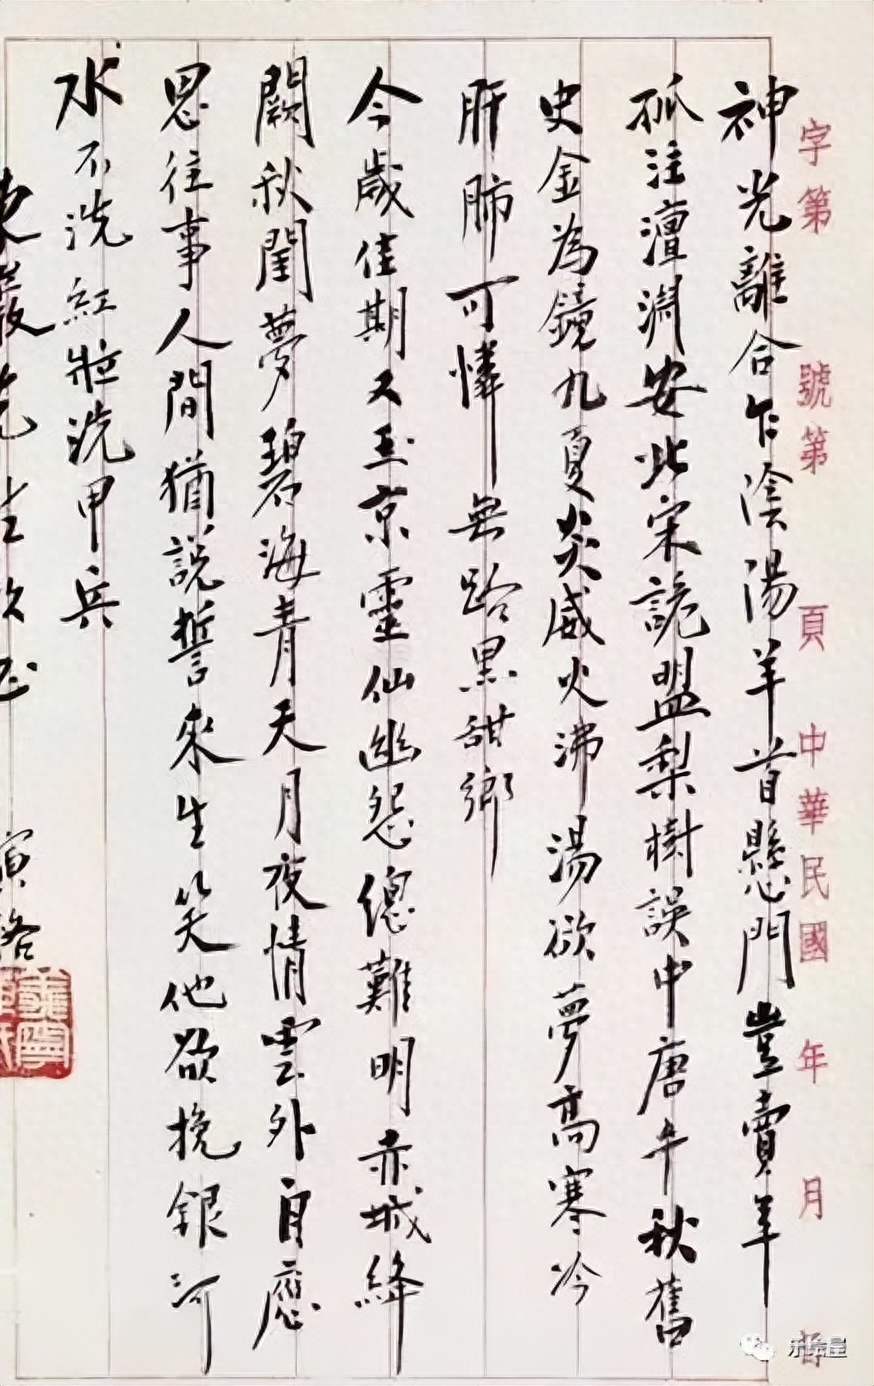 字第 號第 頁 中華民國 年 月
神光離合乍陰陽羊首懸門豈賣羊
孤注澶淵安北宋詭盟梨樹誤中唐千秋舊
史金為鏡九夏炎威火沸湯欲夢高寒冷
肝肺可憐無路黑甜鄉
今歲佳期又玉京靈仙幽怨總難明赤城絳
闕秋閨夢碧海青天月夜情雲外自應
思往事人間猶說誓來生笑他欲挽銀河
水不洗紅粧洗甲兵